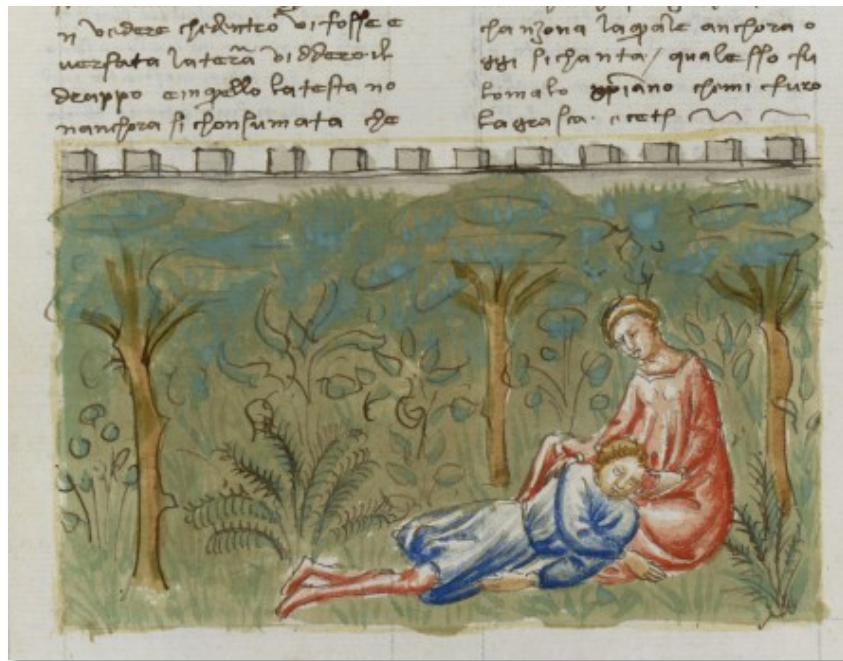 n vedere chedentro vi fosse e
versata laterã viddero il
drappo einquello latesta no
nanchora si chonsumata che
chanzona laquale anchora o
ggi sichanta / qualesso fu
lomalo xpiano chemi furo
lagrasta · ecet